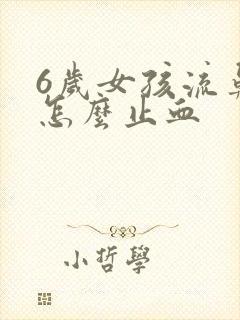 6歲女孩流
怎麼止血
小哲學